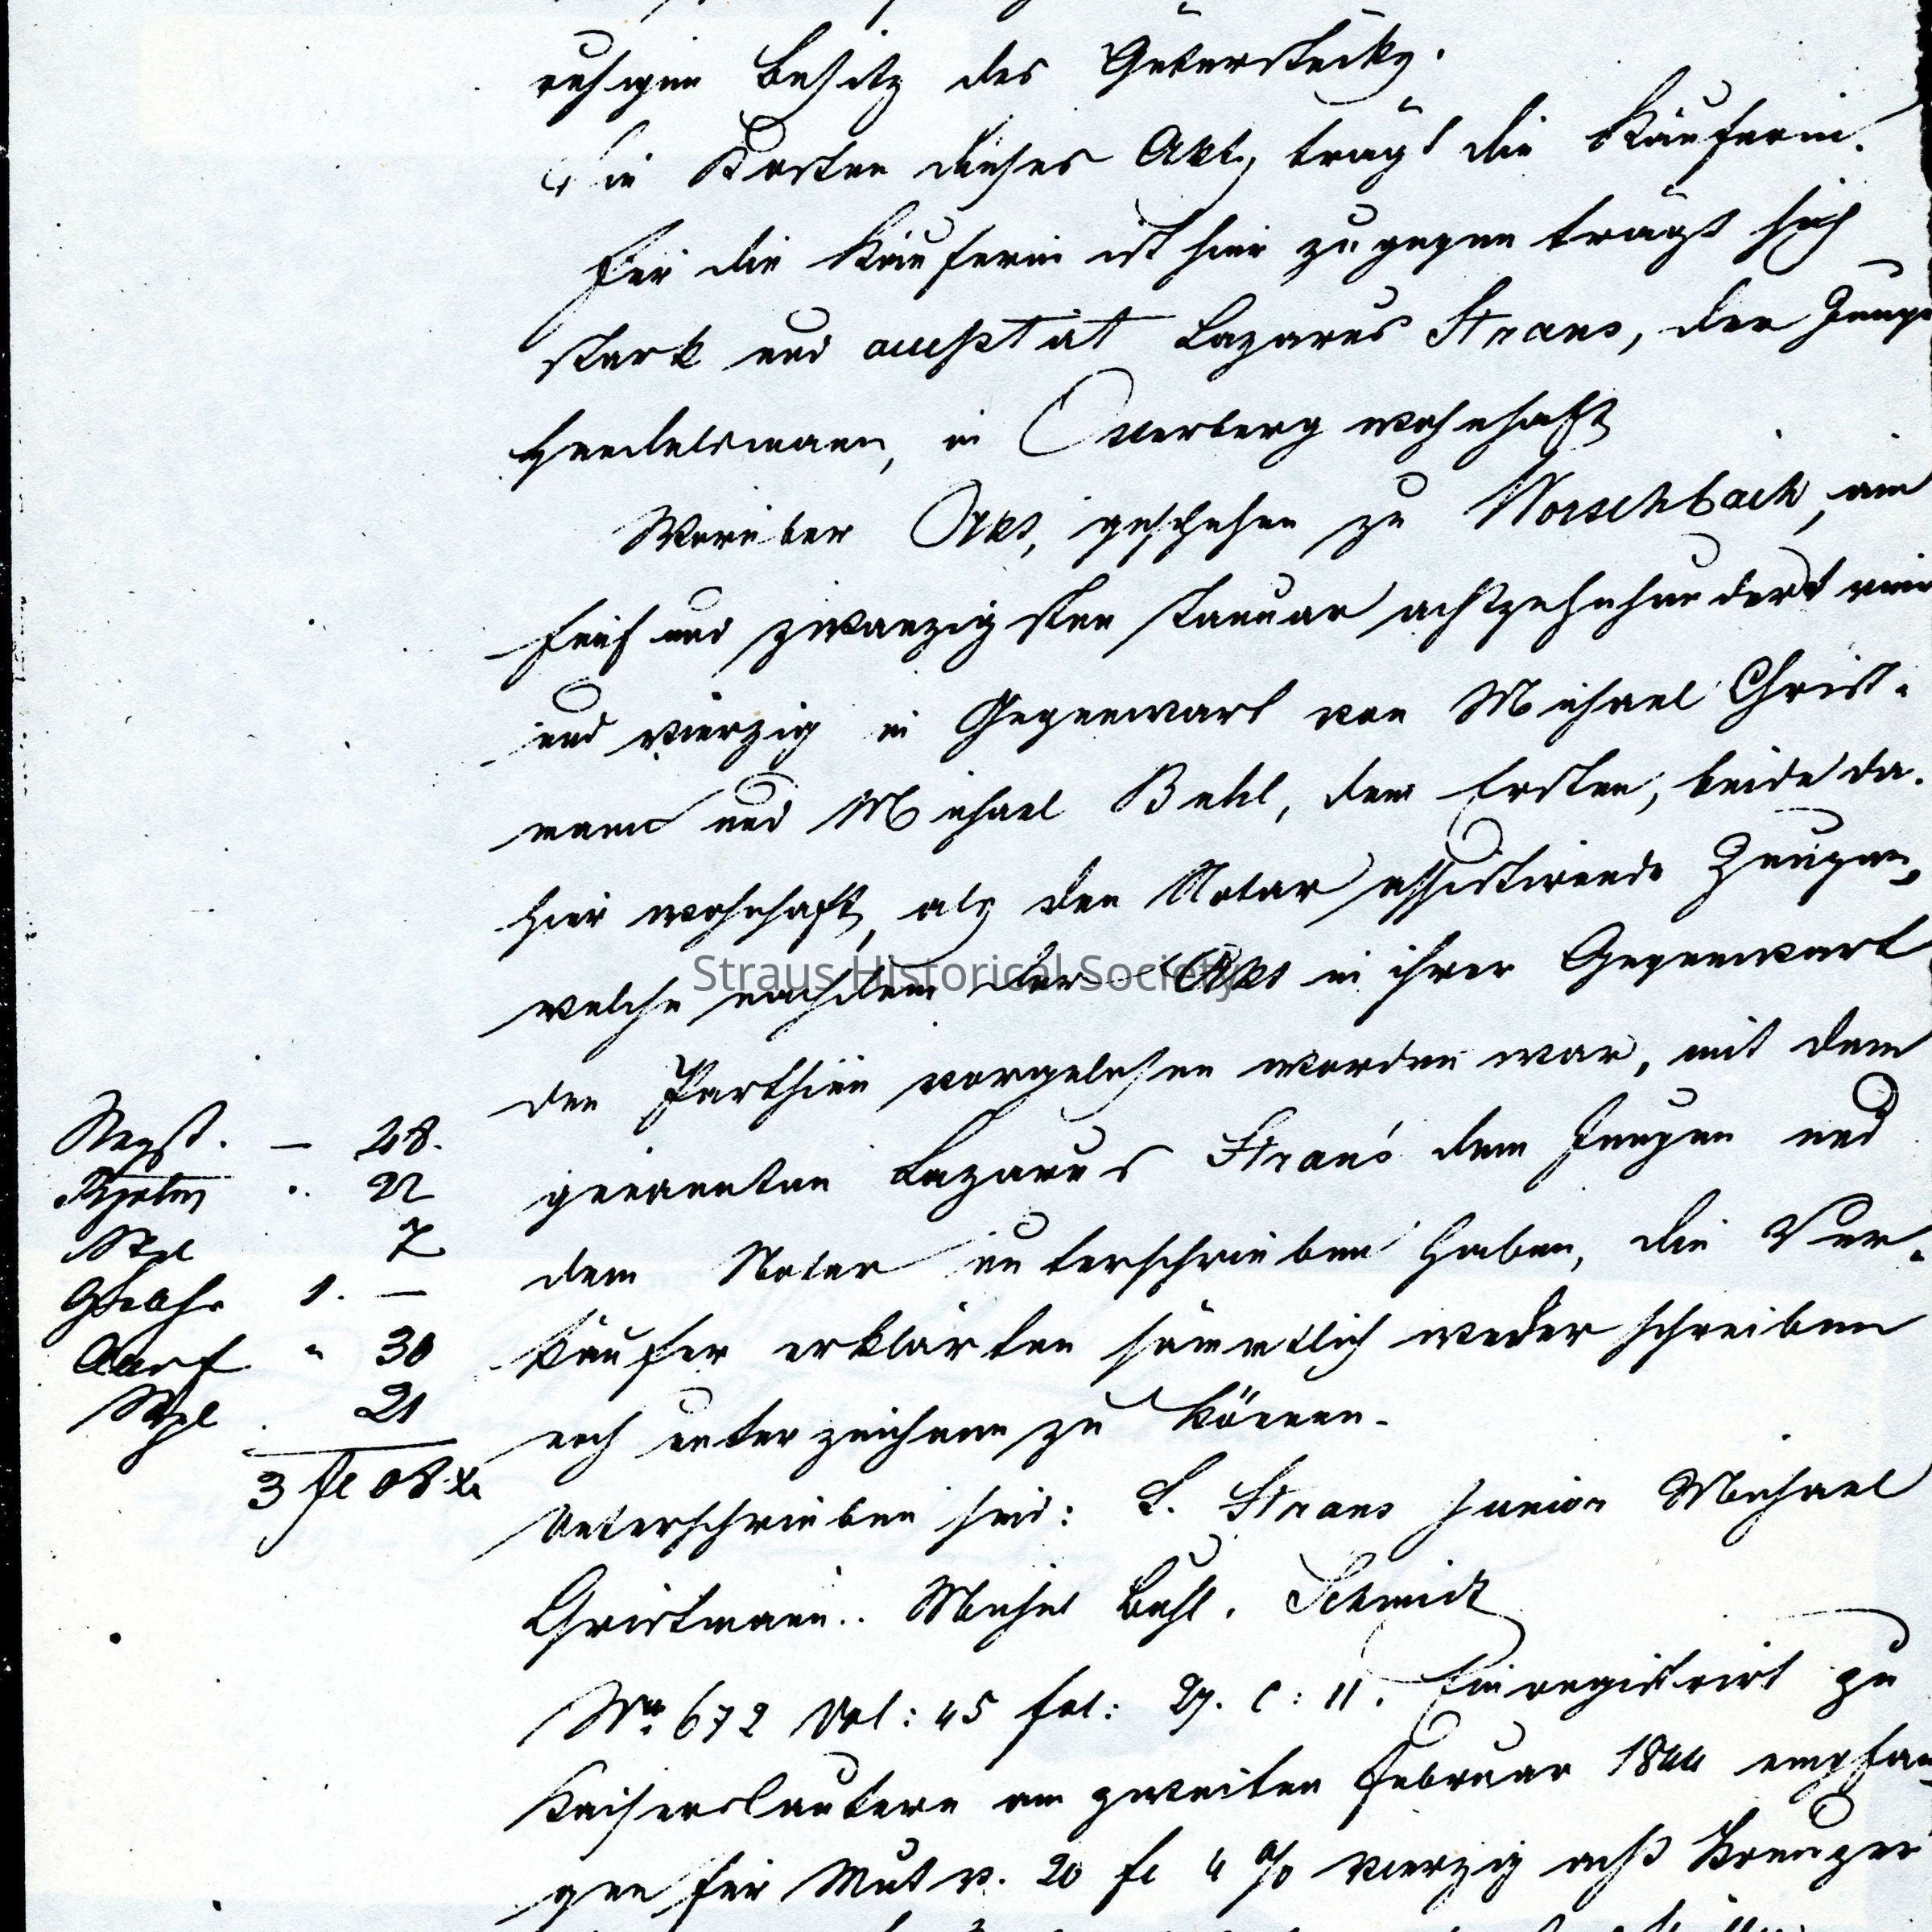 ruhigen Besitz des Güterstücks.
Die Kosten dieses Akts trägt die Käuferin.
Für die Käuferin ist hier zugegen trägt sich
stark und acceptirt Lazarus Straus, der Junge
Handelsmann, in Otterberg wohnhaft
Worüber Akt, geschehen zu Morschbach, am
fünf und zwanzigsten Januar achtzehnhundert vier
und vierzig in Gegenwart von Michael Christ-
mann und Michael Buhl, dem Ersten, beide da-
hier wohnhaft, als den Notar assistirende Zeugen,
welche nachdem der Akt in ihrer Gegenwart
Straus Historical Society
den Parthien vorgelesen worden war, mit dem
genannten Lazarus Straus dem Jungen und
dem Notar unterschrieben haben, die Ver-
käufer erklärten sämmtlich weder schreiben
noch unterzeichnen zu können.
Unterschrieben sind: L. Straus Junior Michael
Christmann.. Michel Buhl. Schmidt
No. 672 Vol: 45 fol: 27. C: 11. Einregistrirt zu
Kaiserslautern am zweiten Februar 1844 empfan
gen für Mut v. 20 fl 4 % vierzig acht Kreuzer
Regst. — 48.
22
Stpl 7
Gebühr 1. —
Ausf " 30
Stpl 21
3 fl 08 x